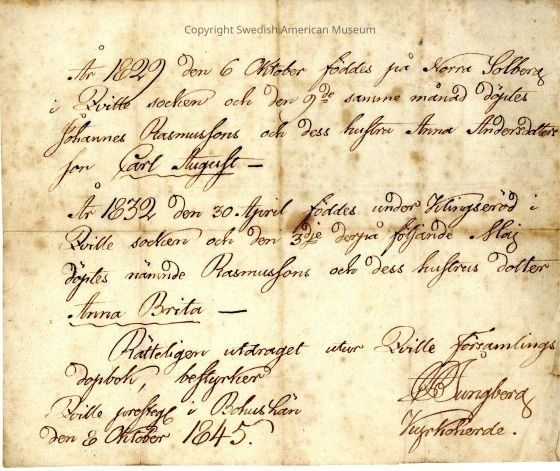 Copyright Swedish American Museum
År 1829 den 6 Oktober föddes på Norra Solberg
i Qville socken och den 9de samme månad döptes
Johannes Rasmussons och dess hustru Anna Andersdotters
son Carl August —
År 1832 den 30 April föddes under Klingseröd i
Qville socken och den 3die derpå följande Maj
döptes nämnde Rasmussons och dess hustrus dotter
Anna Brita —
Rätteligen utdraget utur Qville församlings
dopbok, bestyrker
Qville prestg i Bohuslän
den 8 Oktober 1845.
Ljungberg
Kyrkoherde.